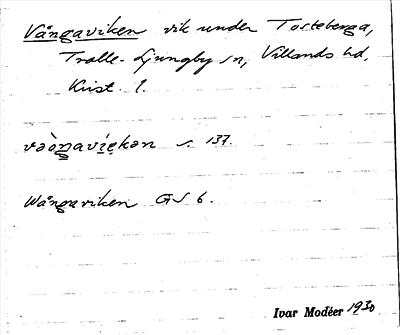 Vångaviken vik under Tosteberga,
Trolle-Ljungby sn, Villands hd,
Krist. l.
vəòŋaviekən s. 137.
Wångaviken GS 6.
Ivar Modéer 1930